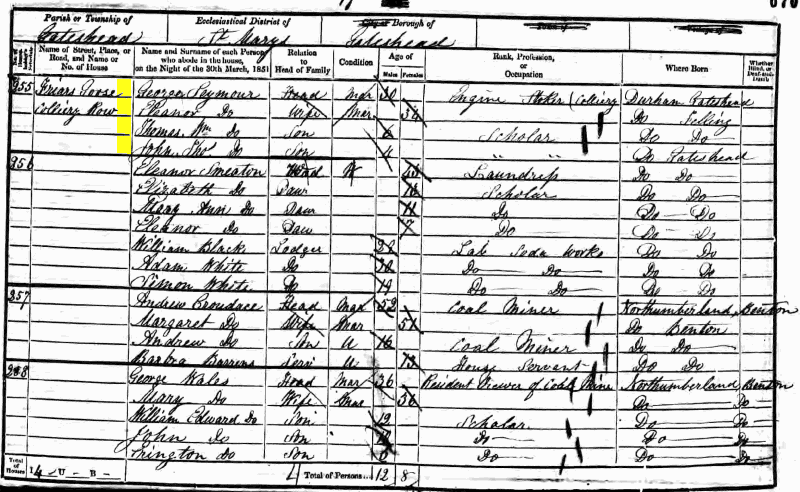 Parish or Township of Gateshead
Ecclesiastical District of St Marys
City or Borough of Gateshead
Town of
Village of
Name of Street, Place, or Road, and Name or No. of House
Name and Surname of each Person who abode in the house, on the Night of the 30th March, 1851
Relation to Head of Family
Condition
Age of
Males Females
Rank, Profession, or Occupation
Where Born
Whether Blind, or Deaf-and-Dumb
255 Friars Goose George Seymour Head Mar 30 Engine Stoker (Colliery Durham Gateshead
Colliery Row Eleanor Do Wife Mar Do
Thomas Wm Do Son 6 Scholar Do Do
John Thos Do Son 4 " " Do Gateshead
256 Eleanor Smeaton Head W Laundress Do Do
Elizabeth Do Daur Scholar Do Do
Mary Ann Do Daur 11 Do Do Do
Eleanor Do Daur 7 Do Do Do
William Black Lodger Lab Soda Works Do Do
Adam White Do Do Do Do Do
Simon White Do 19 Do Do Do Do
257 Andrew Head Mar 52 Coal Miner Northumberland, Benton
Margaret Do Wife Mar Do Benton
Andrew Do Son U 16 Coal Miner Do Do
Barbra Servt U House Servant Do Do
George Wales Head Mar 36 Resident Viewer of Coal Mine Northumberland Benton
Mary Do Wife Mar 36 Do Do
William Edward Do Son 12 Scholar Do Do
John Do Son Do Do Do
Do Son Do Do Do
Total of Houses 4 U B
Total of Persons 12 8